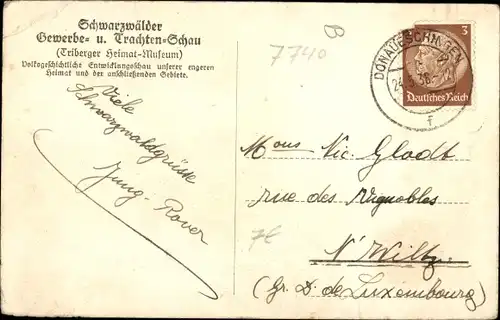 Schwarzwälder
Gewerbe- u. Trachten-Schau
(Triberger Heimat-Museum)
Volksgeschichtliche Entwicklungsschau unserer engeren
Heimat und der anschließenden Gebiete.
B
7740
DONAUESCHINGEN
3
Deutsches Reich
f
Viele
Schwarzwaldgrüße
Jung-
Mons Nic. Glodt
rue des Vignobles
7€
N' Wiltz
(Gr. D. de Luxembourg)